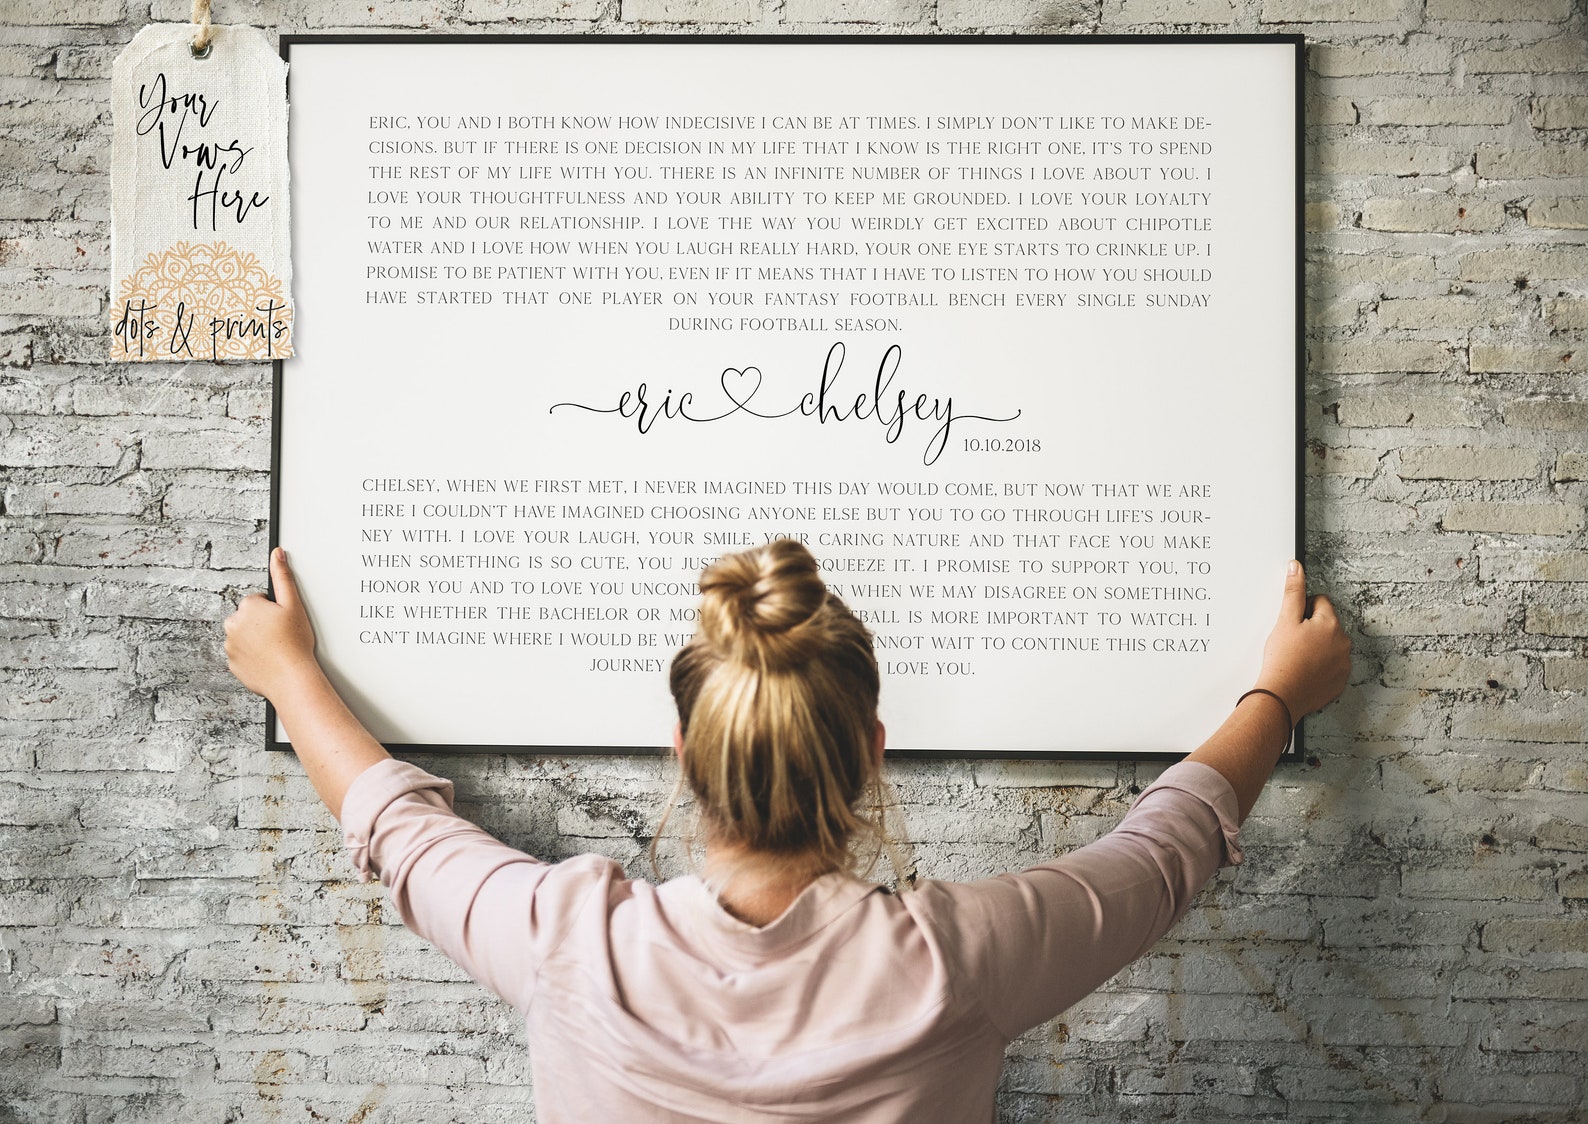 Your
Vows
Here
dots & prints
ERIC, YOU AND I BOTH KNOW HOW INDECISIVE I CAN BE AT TIMES. I SIMPLY DON'T LIKE TO MAKE DE-
CISIONS. BUT IF THERE IS ONE DECISION IN MY LIFE THAT I KNOW IS THE RIGHT ONE, IT'S TO SPEND
THE REST OF MY LIFE WITH YOU. THERE IS AN INFINITE NUMBER OF THINGS I LOVE ABOUT YOU. I
LOVE YOUR THOUGHTFULNESS AND YOUR ABILITY TO KEEP ME GROUNDED. I LOVE YOUR LOYALTY
TO ME AND OUR RELATIONSHIP. I LOVE THE WAY YOU WEIRDLY GET EXCITED ABOUT CHIPOTLE
WATER AND I LOVE HOW WHEN YOU LAUGH REALLY HARD, YOUR ONE EYE STARTS TO CRINKLE UP. I
PROMISE TO BE PATIENT WITH YOU, EVEN IF IT MEANS THAT I HAVE TO LISTEN TO HOW YOU SHOULD
HAVE STARTED THAT ONE PLAYER ON YOUR FANTASY FOOTBALL BENCH EVERY SINGLE SUNDAY
DURING FOOTBALL SEASON.
eric chelsey
10.10.2018
CHELSEY, WHEN WE FIRST MET, I NEVER IMAGINED THIS DAY WOULD COME, BUT NOW THAT WE ARE
HERE I COULDN'T HAVE IMAGINED CHOOSING ANYONE ELSE BUT YOU TO GO THROUGH LIFE'S JOUR-
NEY WITH. I LOVE YOUR LAUGH, YOUR SMILE, YOUR CARING NATURE AND THAT FACE YOU MAKE
WHEN SOMETHING IS SO CUTE, YOU JUST SQUEEZE IT. I PROMISE TO SUPPORT YOU, TO
HONOR YOU AND TO LOVE YOU WHEN WE MAY DISAGREE ON SOMETHING.
LIKE WHETHER THE BACHELOR OR IS MORE IMPORTANT TO WATCH. I
CAN'T IMAGINE WHERE I WOULD BE WAIT TO CONTINUE THIS CRAZY
JOURNEY I LOVE YOU.